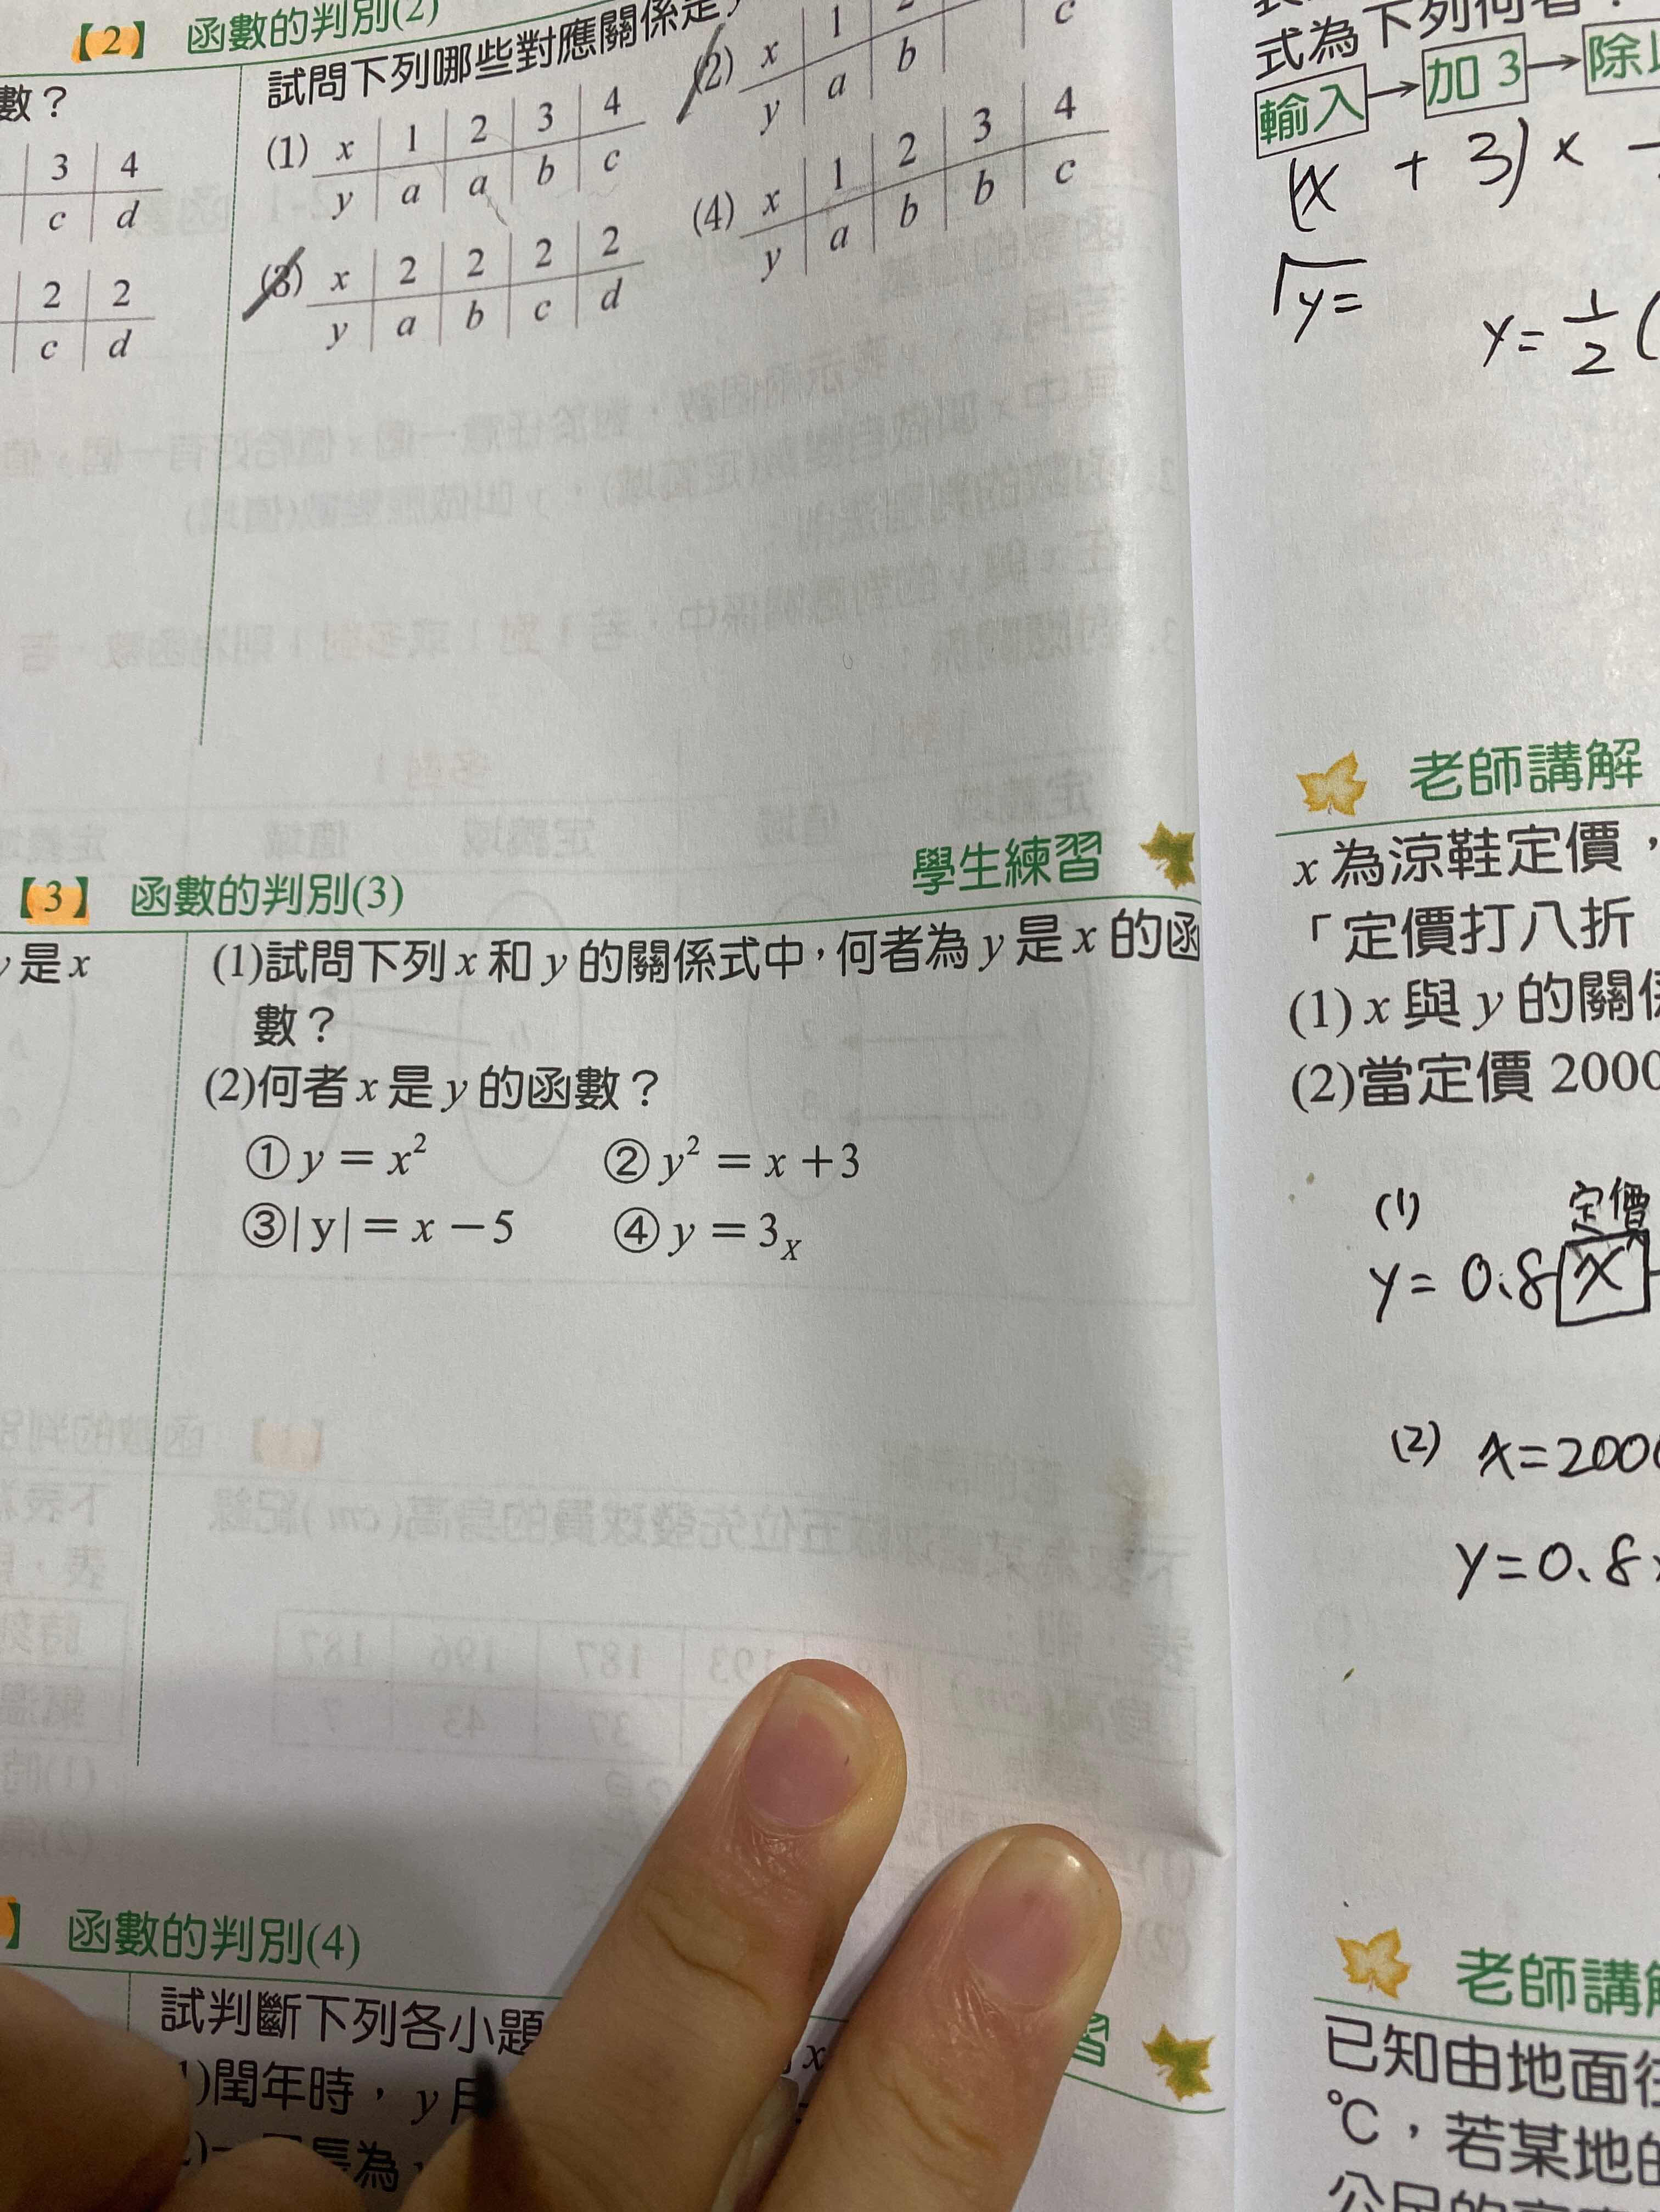 【2】 函數的判別(2)
數？
3 4
c d
2 2
c d
試問下列哪些對應關係是
(1) x 1 2 3 4
y a a b c
(2) x 1
y a b c
(3) x 2 2 2 2
y a b c d
(4) x 1 2 3 4
y a b b c
【3】 函數的判別(3)
學生練習
y是x
(1)試問下列x和y的關係式中，何者為y是x的函
數？
(2)何者x是y的函數？
①y = x²
②y² = x+3
③|y| = x－5
④y = 3ₓ
】 函數的判別(4)
習
試判斷下列各小題
x
1)閏年時，y月
長為
式為下列何者？
輸入→加3→除以
(x + 3) x
y=
y= 1/2 (
老師講解
x為涼鞋定價，
「定價打八折
(1)x與y的關係
(2)當定價2000
(1) 定價
y= 0.8 x
(2) x=2000
y=0.8
老師講解
已知由地面往
℃，若某地的